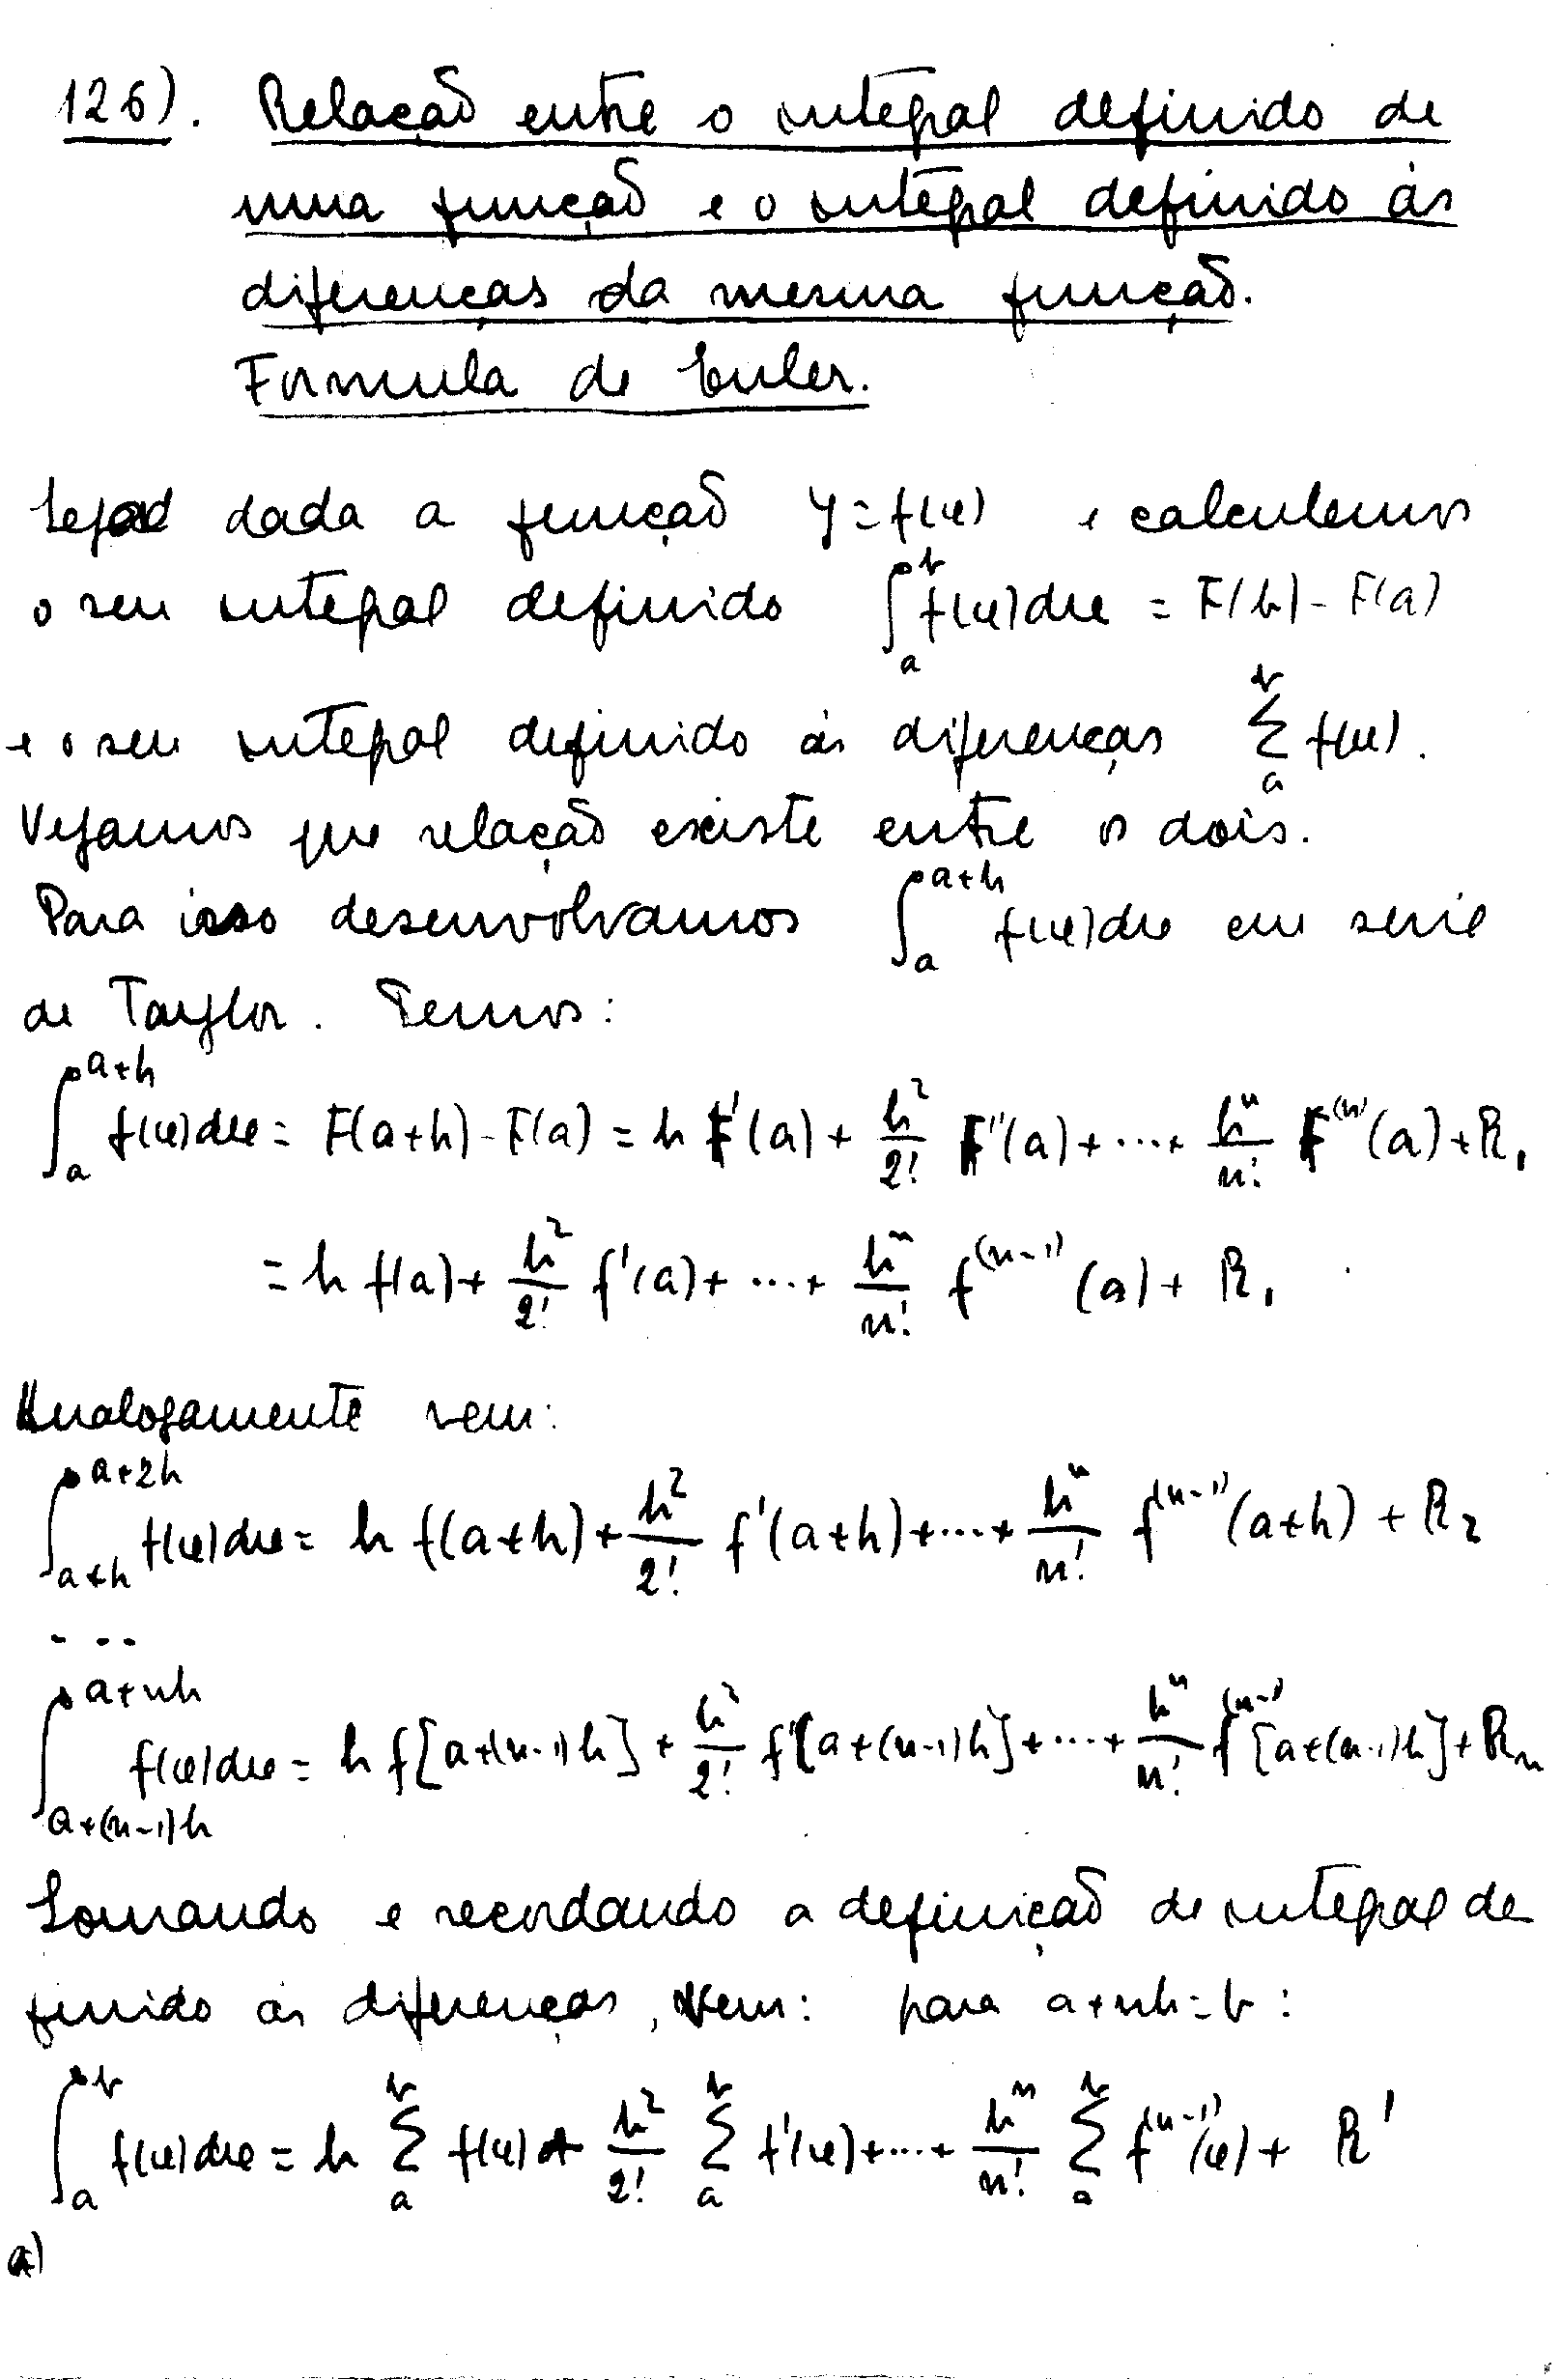 126). Relação entre o integral definido de
uma função e o integral definido ás
diferenças da mesma função.
Formula de Euler.
Seja dada a função y = f(x) e calculemos
o seu integral definido ∫_a^b f(x)dx = F(b) - F(a)
e o seu integral definido ás diferenças Σ_a^b f(x).
Vejamos que relação existe entre os dois.
Para isso desenvolvamos ∫_a^{a+h} f(x)dx em serie
de Taylor. Temos:
∫_a^{a+h} f(x)dx = F(a+h) - F(a) = h F'(a) + h²/2! F''(a) + ... + hⁿ/n! F^{(n)}(a) + R₁
= h f(a) + h²/2! f'(a) + ... + hⁿ/n! f^{(n-1)}(a) + R₁
Analogamente vem:
∫_{a+h}^{a+2h} f(x)dx = h f(a+h) + h²/2! f'(a+h) + ... + hⁿ/n! f^{(n-1)}(a+h) + R₂
- ...
∫_{a+(n-1)h}^{a+nh} f(x)dx = h f[a+(n-1)h] + h²/2! f'[a+(n-1)h] + ... + hⁿ/n! f^{(n-1)}[a+(n-1)h] + Rₙ
Somando e recordando a definição de integral de
finido ás diferenças, vem: para a+nh = b :
∫_a^b f(x)dx = h Σ_a^b f(x) + h²/2! Σ_a^b f'(x) + ... + hⁿ/n! Σ_a^b f^{(n-1)}(x) + R'
a)